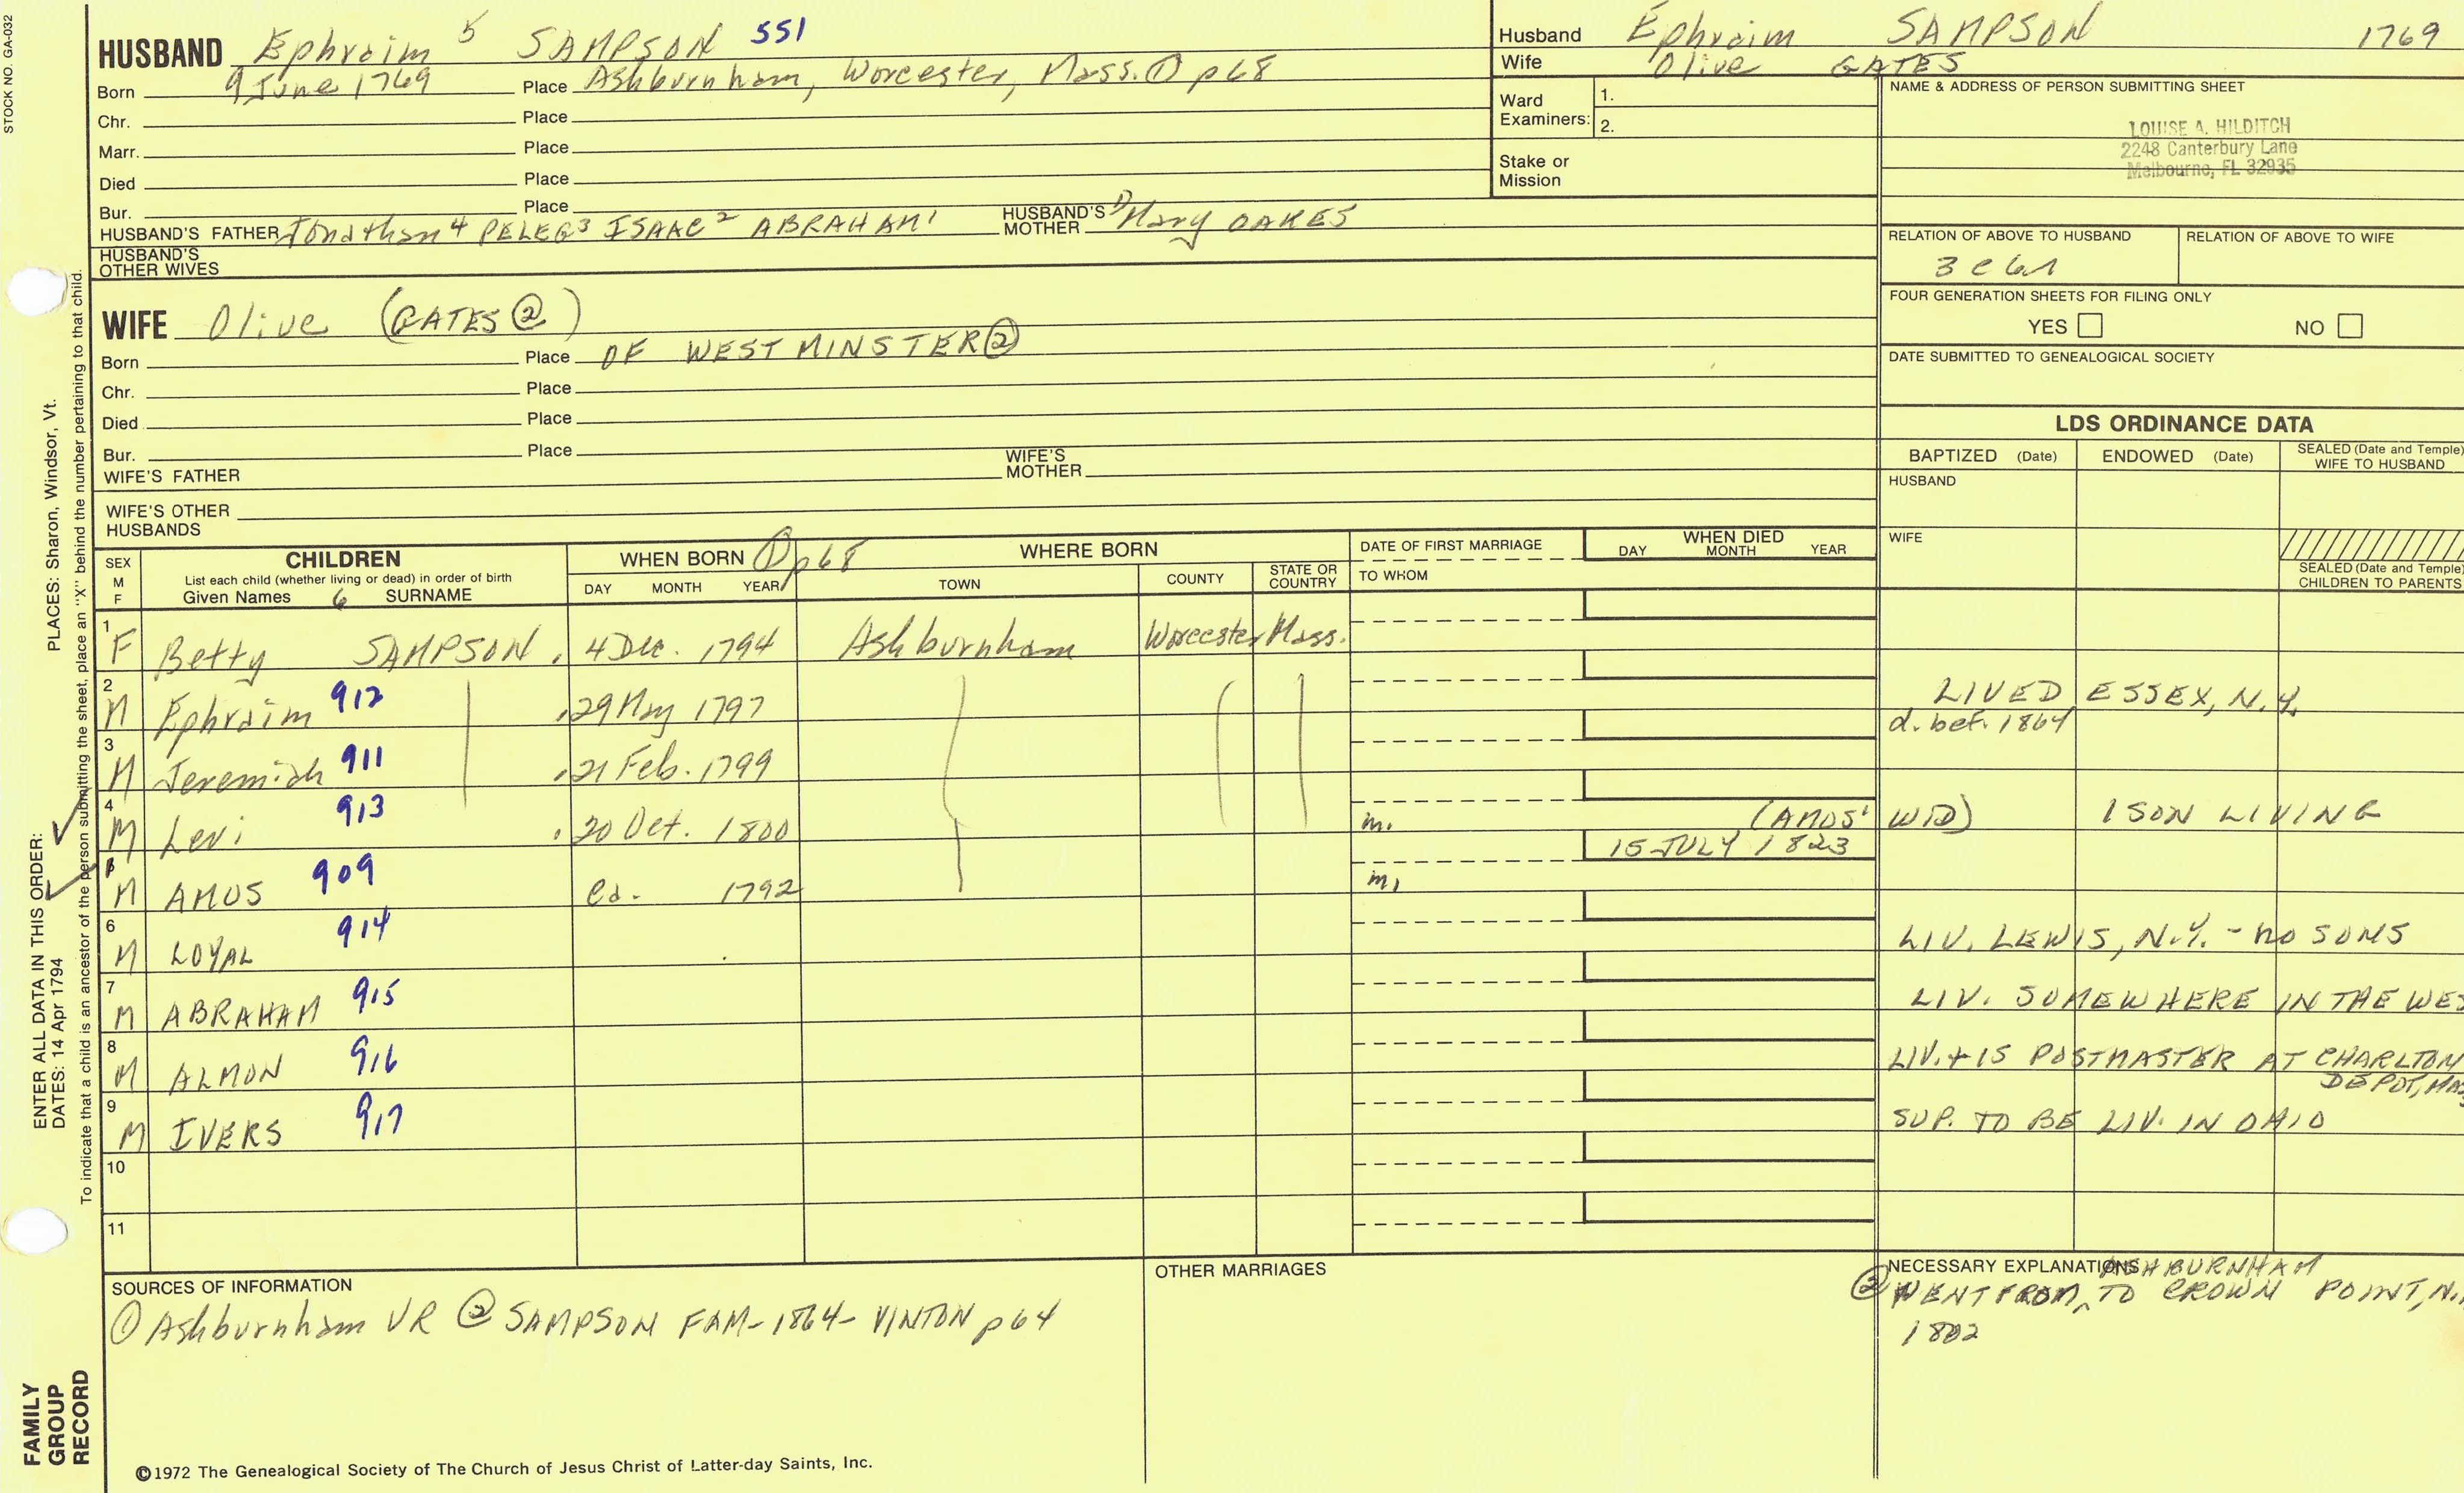 STOCK NO. GA-032
HUSBAND Ephraim 5 SAMPSON 551
Born 9 June 1769 Place Ashburnham, Worcester, Mass. ① p68
Chr. Place
Marr. Place
Died Place
Bur. Place
HUSBAND'S FATHER Jonathan 4 PELEG 3 ISAAC 2 ABRAHAM 1 HUSBAND'S MOTHER ① Mary OAKES
HUSBAND'S OTHER WIVES
WIFE Olive (GATES ②)
Born Place OF WESTMINSTER ②
Chr. Place
Died Place
Bur. Place
WIFE'S FATHER WIFE'S MOTHER
WIFE'S OTHER HUSBANDS
Husband Ephraim SAMPSON 1769
Wife Olive GATES
Ward Examiners: 1. 2.
Stake or Mission
NAME & ADDRESS OF PERSON SUBMITTING SHEET
LOUISE A. HILDITCH
2248 Canterbury Lane
Melbourne, FL 32935
RELATION OF ABOVE TO HUSBAND RELATION OF ABOVE TO WIFE
FOUR GENERATION SHEETS FOR FILING ONLY
YES NO
DATE SUBMITTED TO GENEALOGICAL SOCIETY
LDS ORDINANCE DATA
BAPTIZED (Date) ENDOWED (Date) SEALED (Date and Temple) WIFE TO HUSBAND
HUSBAND
WIFE
SEALED (Date and Temple) CHILDREN TO PARENTS
SEX M F
CHILDREN
List each child (whether living or dead) in order of birth
Given Names 6 SURNAME
WHEN BORN ① p68
DAY MONTH YEAR
WHERE BORN
TOWN COUNTY STATE OR COUNTRY
DATE OF FIRST MARRIAGE
TO WHOM
WHEN DIED
DAY MONTH YEAR
1 F Betty SAMPSON 4 Dec. 1794 Ashburnham Worcester Mass.
2 M Ephraim 912 29 May 1797 LIVED ESSEX, N.Y.
d. bef. 1864
3 M Jeremiah 911 21 Feb. 1799
4 M Levi 913 20 Oct. 1800 m. (AMOS' WID) 1 SON LIVING
15 JULY 1823
M AMOS 909 ca. 1792 m.
6 M LOYAL 914 LIV. LEWIS, N.Y. - no SONS
7 M ABRAHAM 915 LIV. SOMEWHERE IN THE WES
8 M ALMON 916 LIV. + IS POSTMASTER AT CHARLTON
DEPOT, MAS
9 M IVERS 917 SUP. TO BE LIV. IN OHIO
10
11
SOURCES OF INFORMATION
① Ashburnham VR ② SAMPSON FAM-1864-VINTON p64
OTHER MARRIAGES
NECESSARY EXPLANATIONS
ASHBURNHAM
② WENT FROM ^ TO CROWN POINT, N.
1802
©1972 The Genealogical Society of The Church of Jesus Christ of Latter-day Saints, Inc.
FAMILY GROUP RECORD
ENTER ALL DATA IN THIS ORDER:
DATES: 14 Apr 1794
PLACES: Sharon, Windsor, Vt.
To indicate that a child is an ancestor of the person submitting the sheet, place an "X" behind the number pertaining to that child.